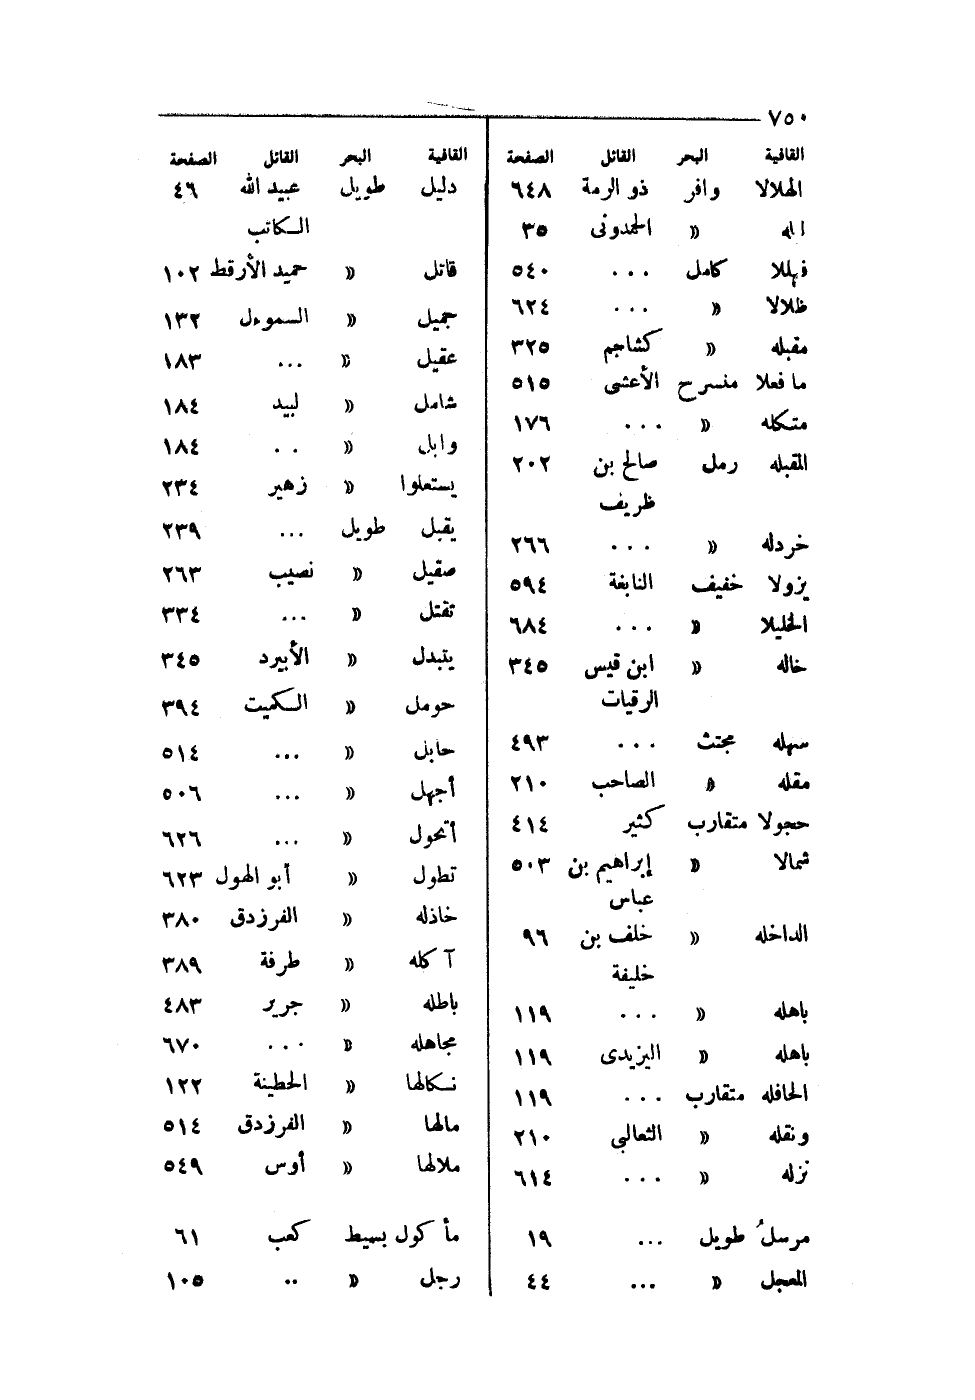 ٧٥٠
القافية البحر القائل الصفحة
الهلالا وافر ذو الرمة ٦٤٨
اله » الحمدونى ٣٥
فهللا كامل ... ٥٤٠
ظلالا » ... ٦٢٤
مقبله » كشاجم ٣٢٥
ما فعلا منسرح الأعشى ٥١٥
متكله » ... ١٧٦
المقبله رمل صالح بن ٢٠٢
ظريف
خردله » ... ٢٦٦
يزولا خفيف النابغة ٥٩٤
الخليلا » ... ٦٨٤
خاله » ابن قيس ٣٤٥
الرقيات
سهله مجتث ... ٤٩٣
مقله » الصاحب ٢١٠
حجولا متقارب كثير ٤١٤
شمالا » إبراهيم بن ٥٠٣
عباس
الداخله » خلف بن ٩٦
خليفة
باهله » ... ١١٩
باهله » اليزيدى ١١٩
الحافله متقارب ... ١١٩
ونقله » الثعالبي ٢١٠
نزله » ... ٦١٤
مرسلُ طويل ... ١٩
المعجل » ... ٤٤
القافية البحر القائل الصفحة
دليل طويل عبيد الله ٤٦
الكاتب
قاتل » حميد الأرقط ١٠٢
جميل » السموءل ١٣٢
عقيل » ... ١٨٣
شامل » لبيد ١٨٤
وابل » .. ١٨٤
يستعلوا » زهير ٢٣٤
يقبل طويل ... ٢٣٩
صقيل » نصيب ٢٦٣
تقتل » ... ٣٣٤
يتبدل » الأبيرد ٣٤٥
حومل » الكميت ٣٩٤
حابل » ... ٥١٤
أجهل » ... ٥٠٦
أتحول » ... ٦٢٦
تطول » أبو الهول ٦٢٣
خاذله » الفرزدق ٣٨٠
آكله » طرفة ٣٨٩
باطله » جرير ٤٨٣
مجاهله » ... ٦٧٠
نكالها » الحطيئة ١٢٢
مالها » الفرزدق ٥١٤
ملالها » أوس ٥٤٩
مأكول بسيط كعب ٦١
رجل » .. ١٠٥